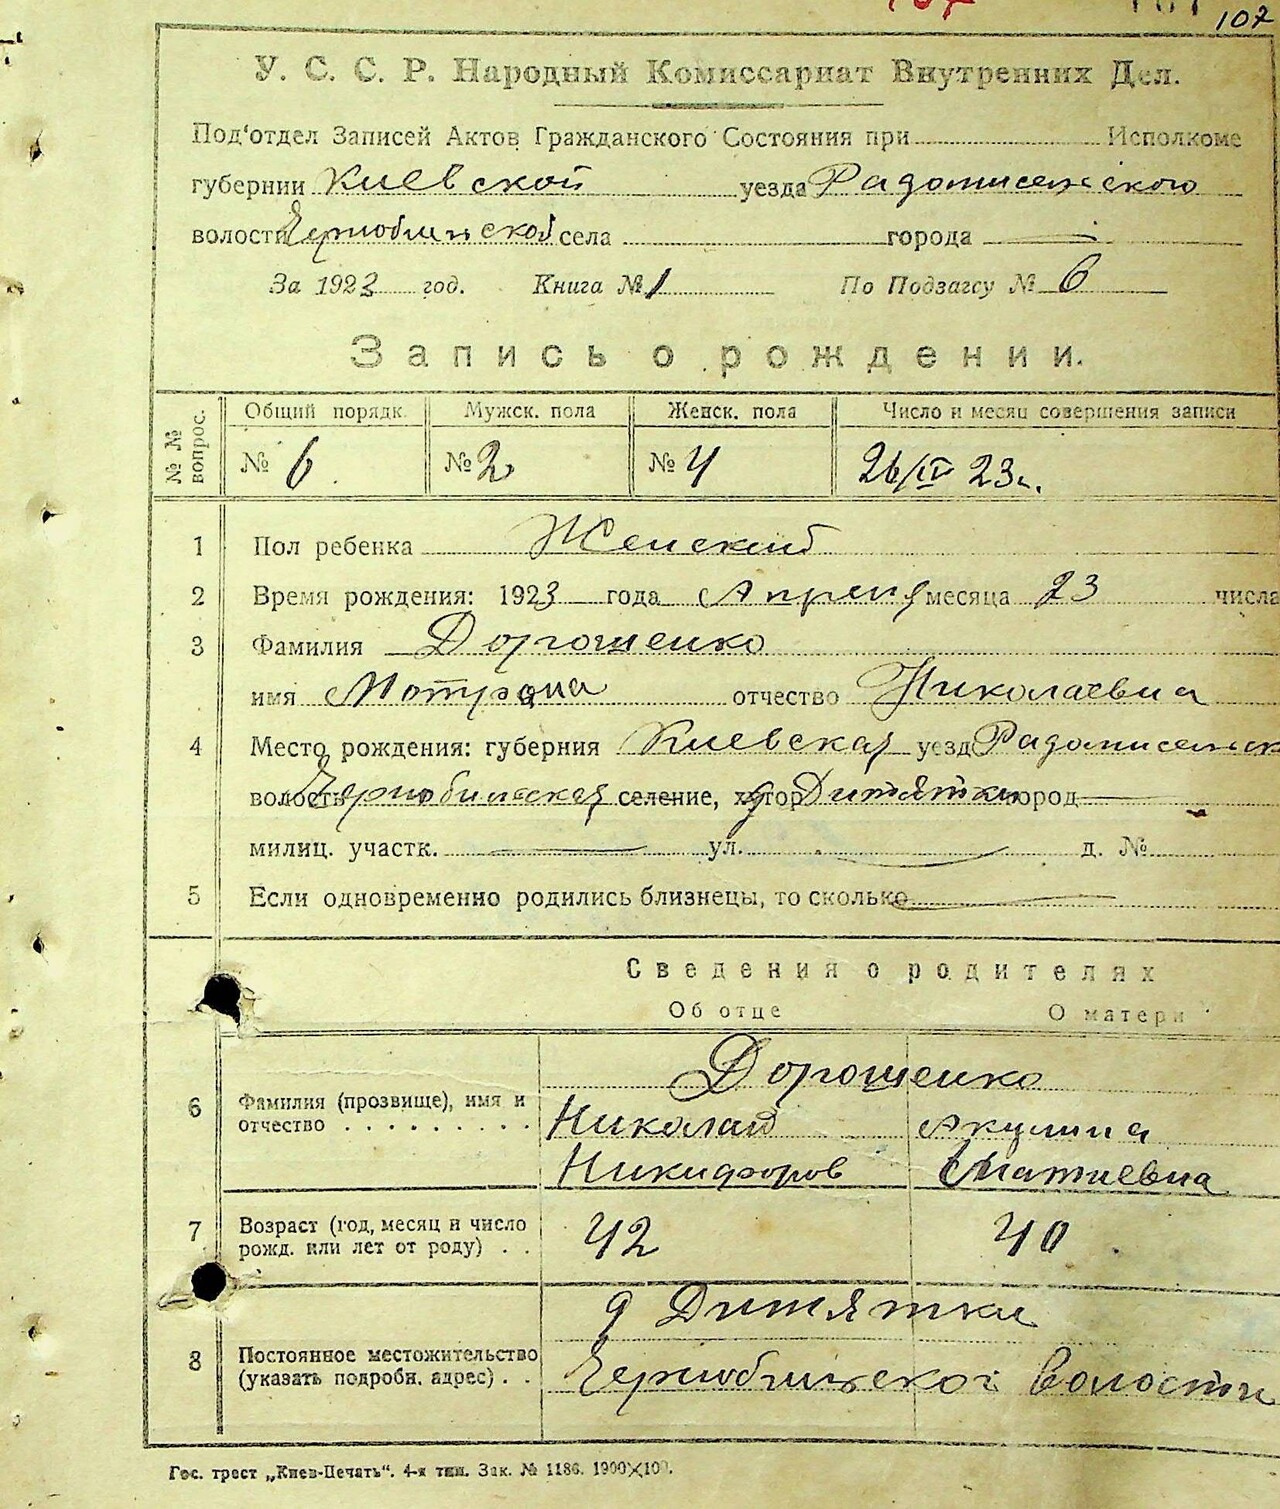 107
У. С. С. Р. Народный Комиссариат Внутренних Дел.
Под'отдел Записей Актов Гражданского Состояния при Исполкоме
губернии Киевской уезда Радомисельского
волости Чернобильской села города —
За 1923 год. Книга № 1 По Подзагсу № 6
Запись о рождении.
№№ вопрос. Общий порядк. Мужск. пола Женск. пола Число и месяц совершения записи
№ 6 № 2 № 4 26/IV 23г.
1 Пол ребенка Женский
2 Время рождения: 1923 года Апреля месяца 23 числа
3 Фамилия Дорошенко
имя Мотрона отчество Николаевна
4 Место рождения: губерния Киевская уезд Радомисельск
волость Чернобильская селение, хутор д Дитятки город —
милиц. участк. — ул. — д. №
5 Если одновременно родились близнецы, то сколько —
Сведения о родителях
Об отце О матери
Дорошенко
6 Фамилия (прозвище), имя и Николай Акулина
отчество . . . . . . . . . Никифоров Матиевна
7 Возраст (год, месяц и число 42 40
рожд. или лет от роду) . .
д Дитятки
8 Постоянное местожительство Чернобильской волости
(указать подробн. адрес) . .
Гос. трест „Киев-Печать“. 4-я тип. Зак. № 1186. 1900×100.